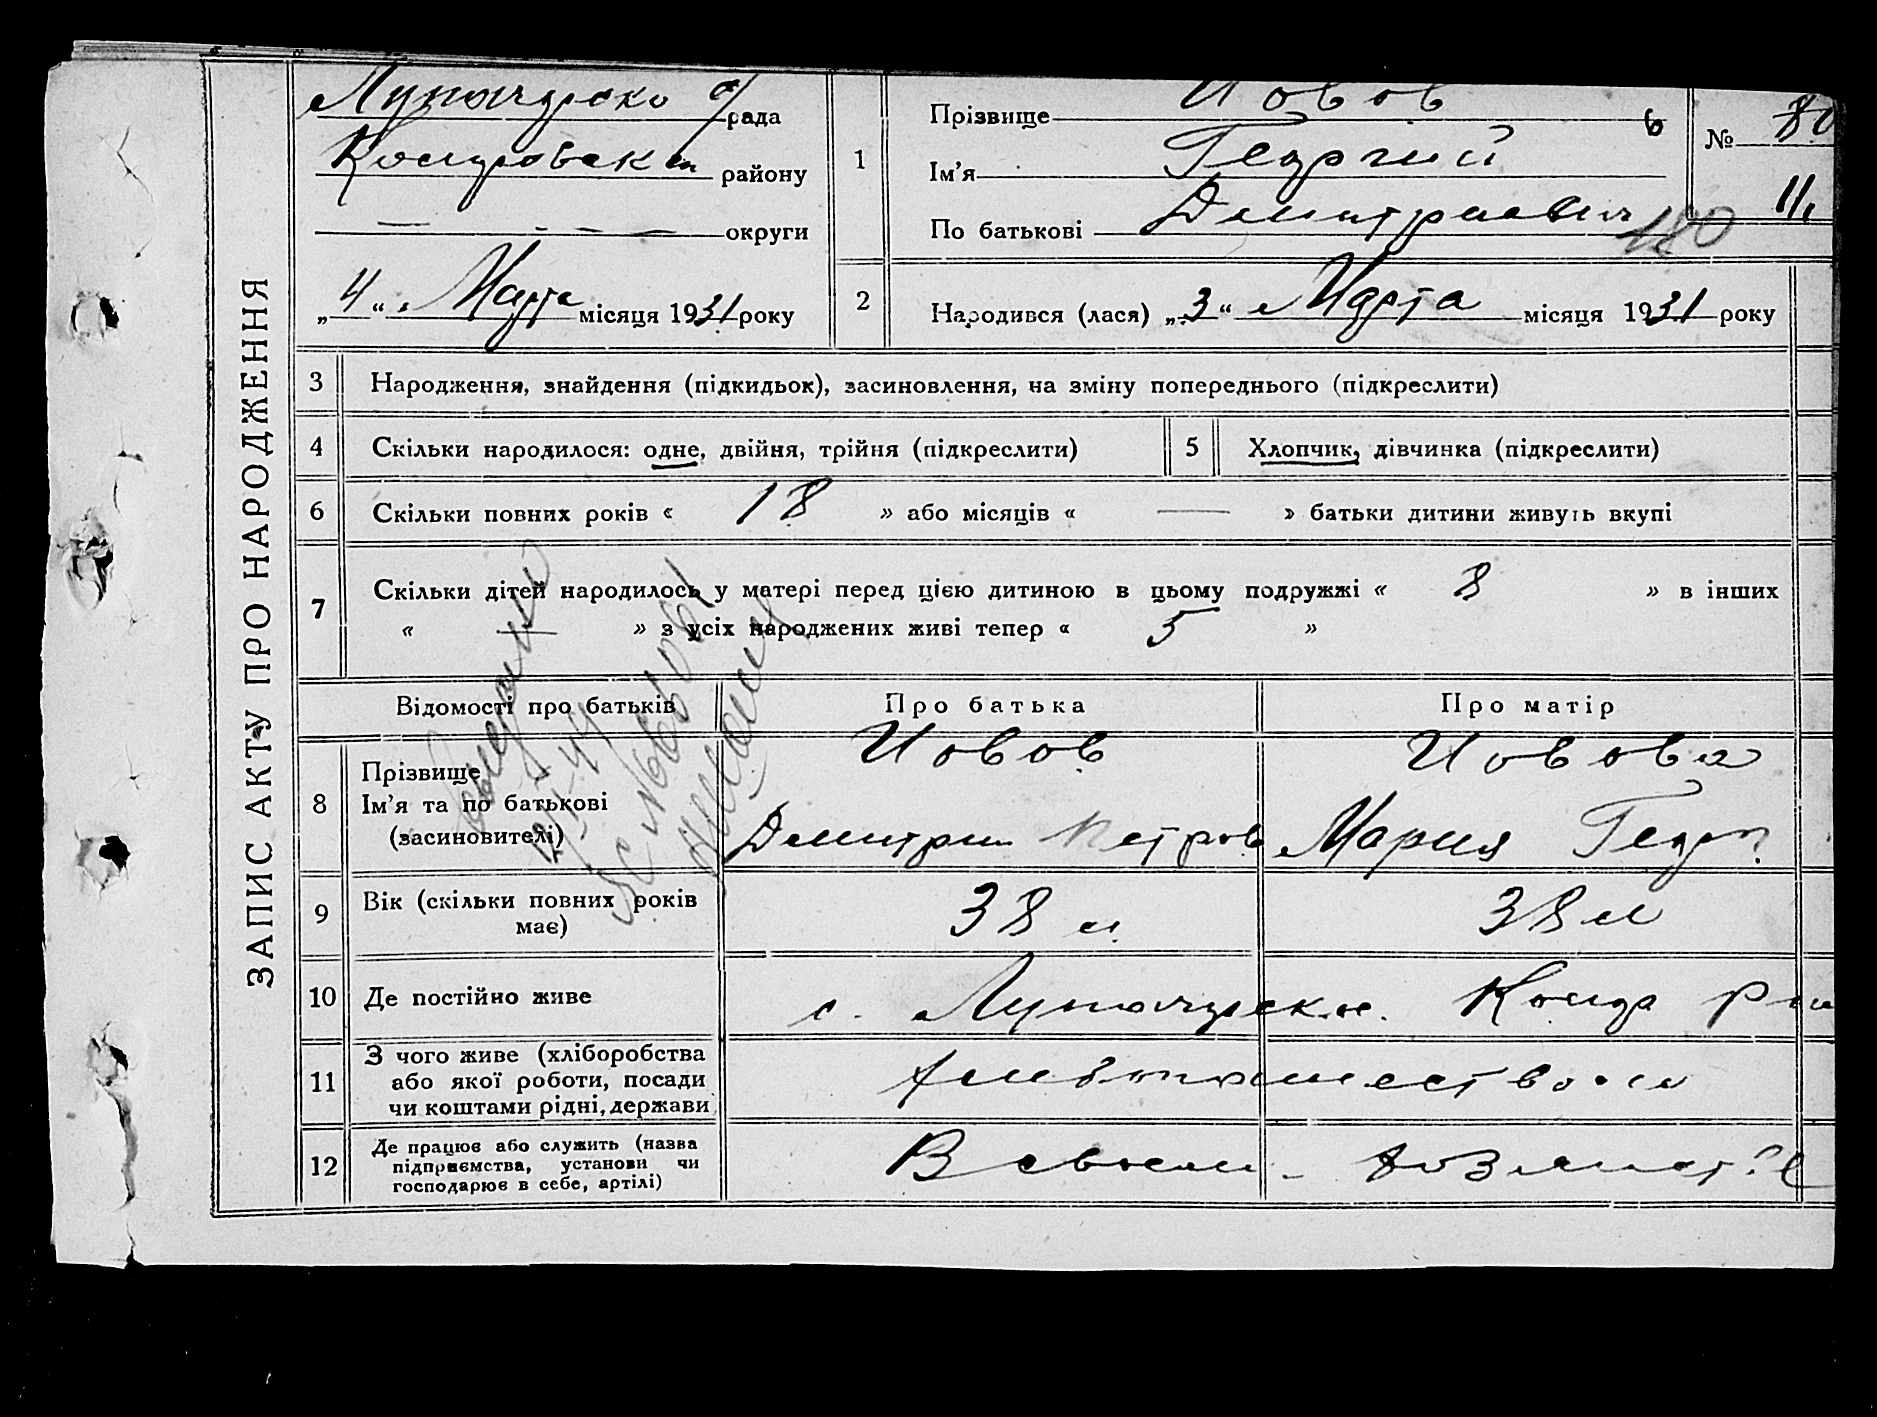 ЗАПИС АКТУ ПРО НАРОДЖЕННЯ
Луначарско с/рада
району
округи
„4“ Марта місяця 1931 року
1
Прізвище Иовов
Ім’я Георгий
По батькові Дмитриевич
№ 80
11
180
2
Народився (лася) „3“ Марта місяця 1931 року
3 Народження, знайдення (підкидьок), засиновлення, на зміну попереднього (підкреслити)
4 Скільки народилося: одне, двійня, трійня (підкреслити)
5 Хлопчик, дівчинка (підкреслити)
6 Скільки повних років « 18 » або місяців « — » батьки дитини живуть вкупі
7 Скільки дітей народилось у матері перед цією дитиною в цьому подружжі « 8 » в інших
« — » з усіх народжених живі тепер « 5 »
Відомості про батьків Про батька Про матір
8 Прізвище Иовов Иовова
Ім’я та по батькові Дмитрий Петров Мария Георг.
(засиновителі)
9 Вік (скільки повних років має) 38 л 38 л
10 Де постійно живе с. Луначарское.
11 З чого живе (хліборобства
або якої роботи, посади
чи коштами рідні, держави
хлебопашеством
12 Де працює або служить (назва
підприємства, установи чи
господарює в себе, артілі)
В своем хозяйстве